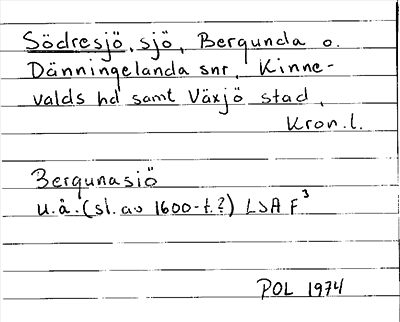 Södresjö, sjö, Bergunda o.
Dänningelanda snr, Kinne-
valds hd samt Växjö stad,
Kron.l.
Bergunasiö
u.å. (sl. av 1600-t.?) LSA F³
POL 1974